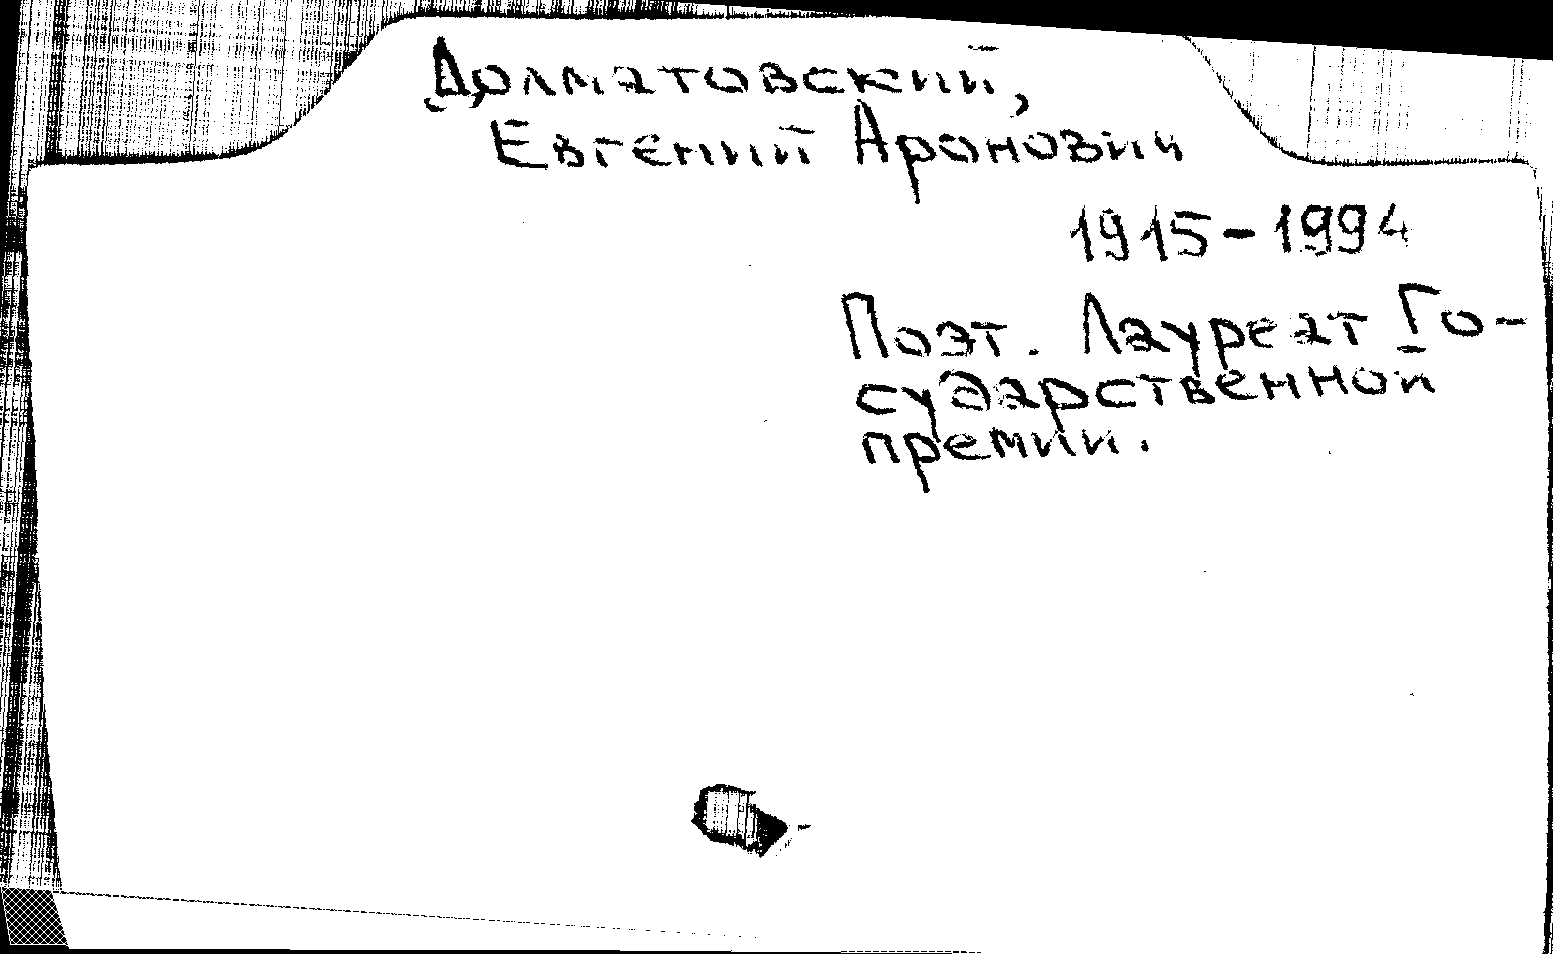 Долматовский,
Евгений Аронович
1915-1994
Поэт. Лауреат Го-
сударственной
премии.